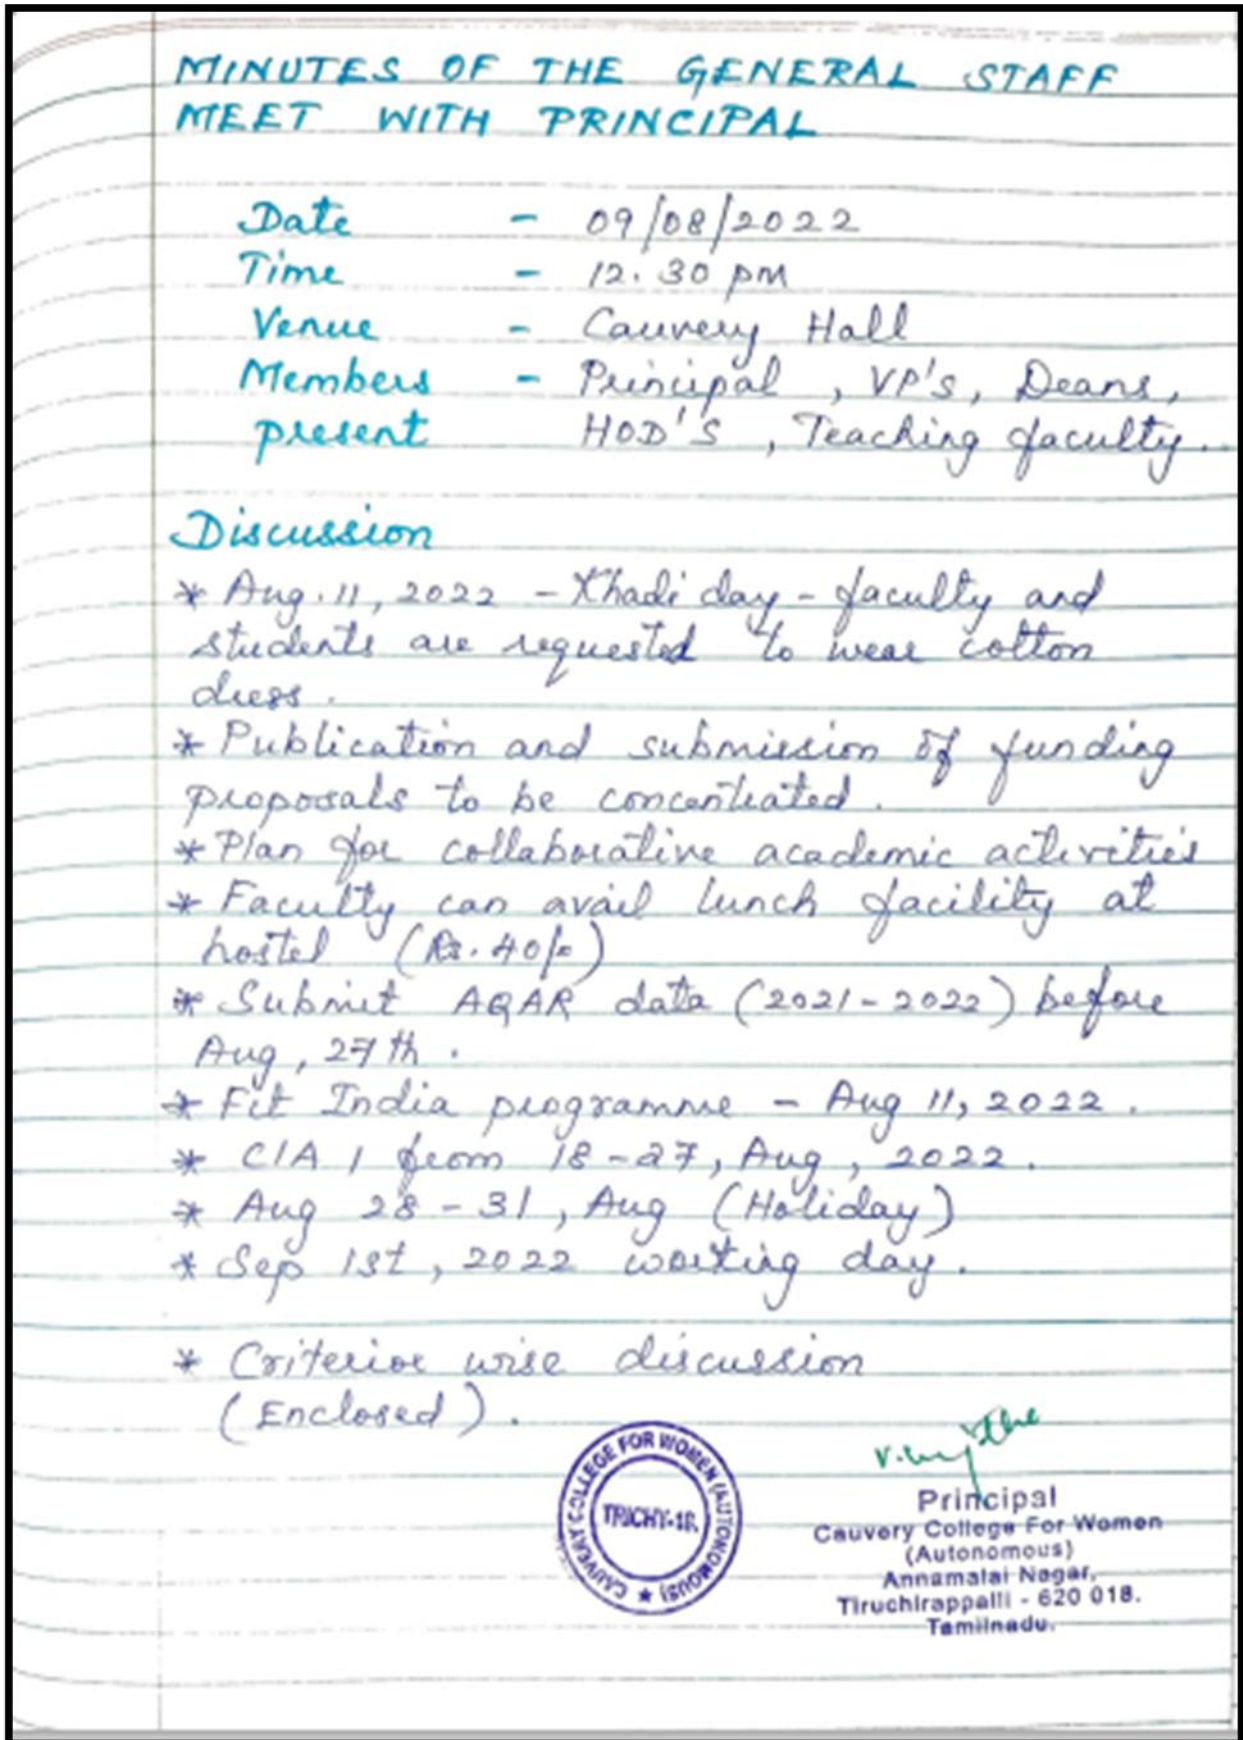 MINUTES OF THE GENERAL STAFF
MEET WITH PRINCIPAL
Date - 09/08/2022
Time - 12.30 pm
Venue - Cauvery Hall
Members - Principal , VP's, Deans,
present HOD'S , Teaching faculty.
Discussion
* Aug.11, 2022 - Khadi day - faculty and
students are requested to wear cotton
dress.
* Publication and submission of funding
proposals to be concentrated.
* Plan for collaborative academic activities
* Faculty can avail lunch facility at
hostel (Rs. 40/-)
* Submit AQAR data (2021-2022) before
Aug, 27th.
* Fit India programme - Aug 11, 2022.
* CIA 1 from 18-27, Aug, 2022.
* Aug 28-31, Aug (Holiday)
* Sep 1st, 2022 working day.
* Criterior wise discussion
(Enclosed).
CAUVERY COLLEGE FOR WOMEN (AUTONOMOUS) ★
TRICHY-18.
Principal
Cauvery College For Women
(Autonomous)
Annamalai Nagar,
Tiruchirappalli - 620 018.
Tamilnadu.